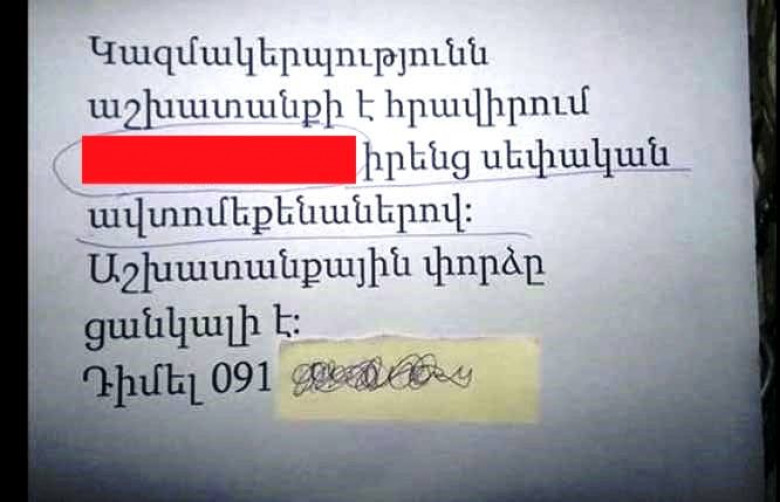 Կազմակերպությունն
աշխատանքի է հրավիրում
իրենց սեփական
ավտոմեքենաներով:
Աշխատանքային փորձը
ցանկալի է:
Դիմել 091